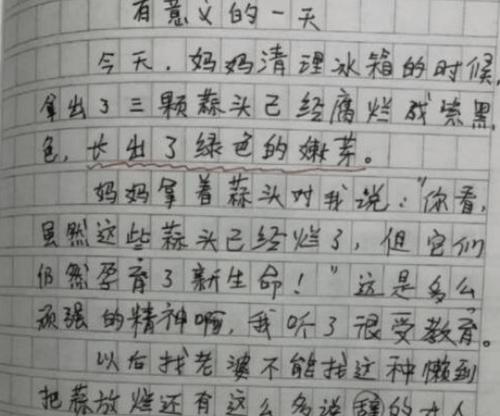 有意义的一天
今天，妈妈清理冰箱的时候，
拿出了三颗蒜头已经腐烂成紫黑
色，长出了绿色的嫩芽。
妈妈拿着蒜头对我说："你看，
虽然这些蒜头已经烂了，但它们
仍然孕育了新生命！"这是多么
顽强的精神啊，我听了很受教育。
以后找老婆不能找这种懒到
把蒜放烂还有这么多说辞的女人